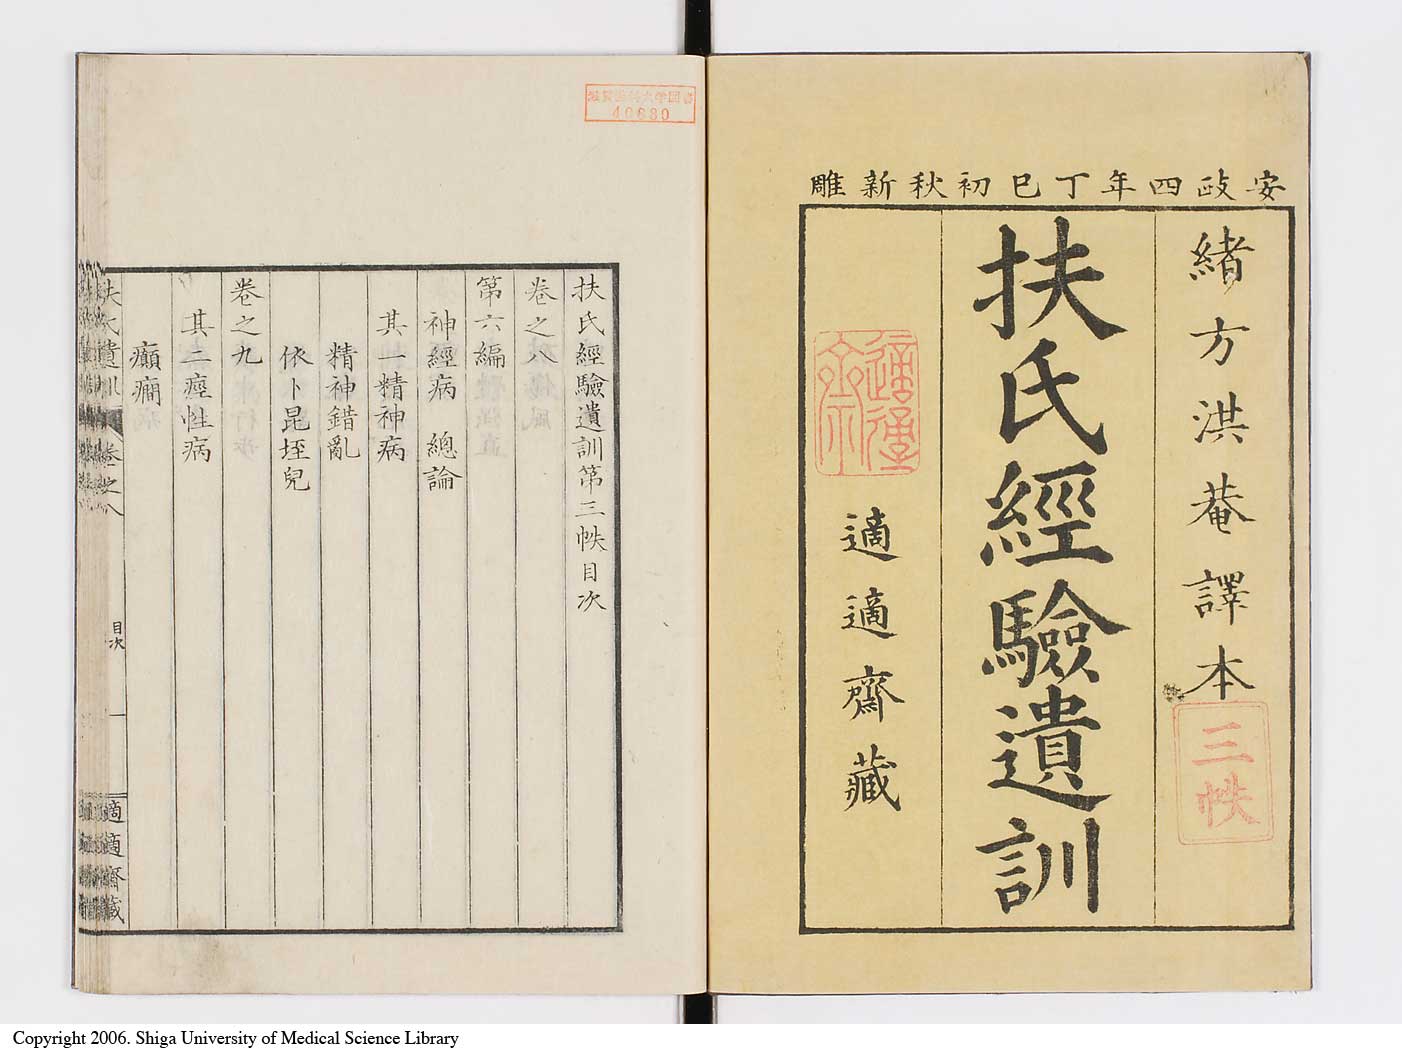 安政四年丁巳初秋新雕
緒方洪菴譯本
三帙
扶氏經驗遺訓
適適齋
適適齋藏
滋賀医科大学図書
40689
扶氏經驗遺訓第三帙目次
卷之八
第六編
神經病 總論
其一精神病
精神錯亂
依卜昆垤兒
卷之九
其二痙性病
癲癇
扶氏遺訓 卷之八 目次 一 適適齋藏
Copyright 2006. Shiga University of Medical Science Library